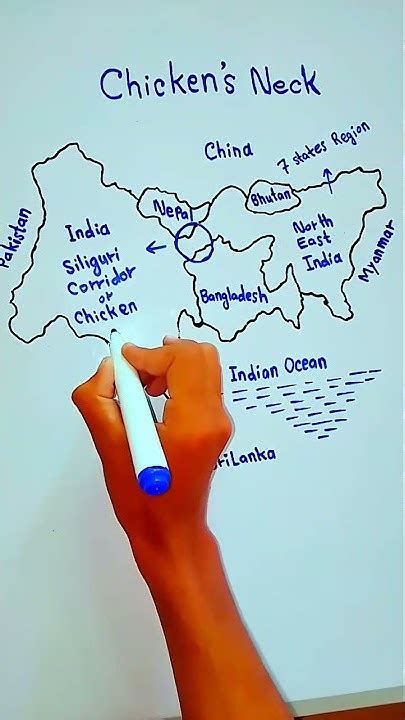 Chicken's Neck
China
7 states Region
Pakistan
Nepal
Bhutan
India
Siliguri
Corridor
or
Chicken
North
East
India
Myanmar
Bangladesh
Indian Ocean
SriLanka